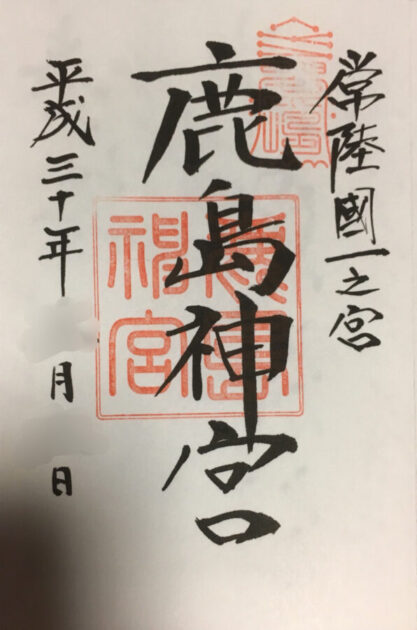 常陸國一之宮
鹿島神宮
鹿島神宮
平成三十年 月 日